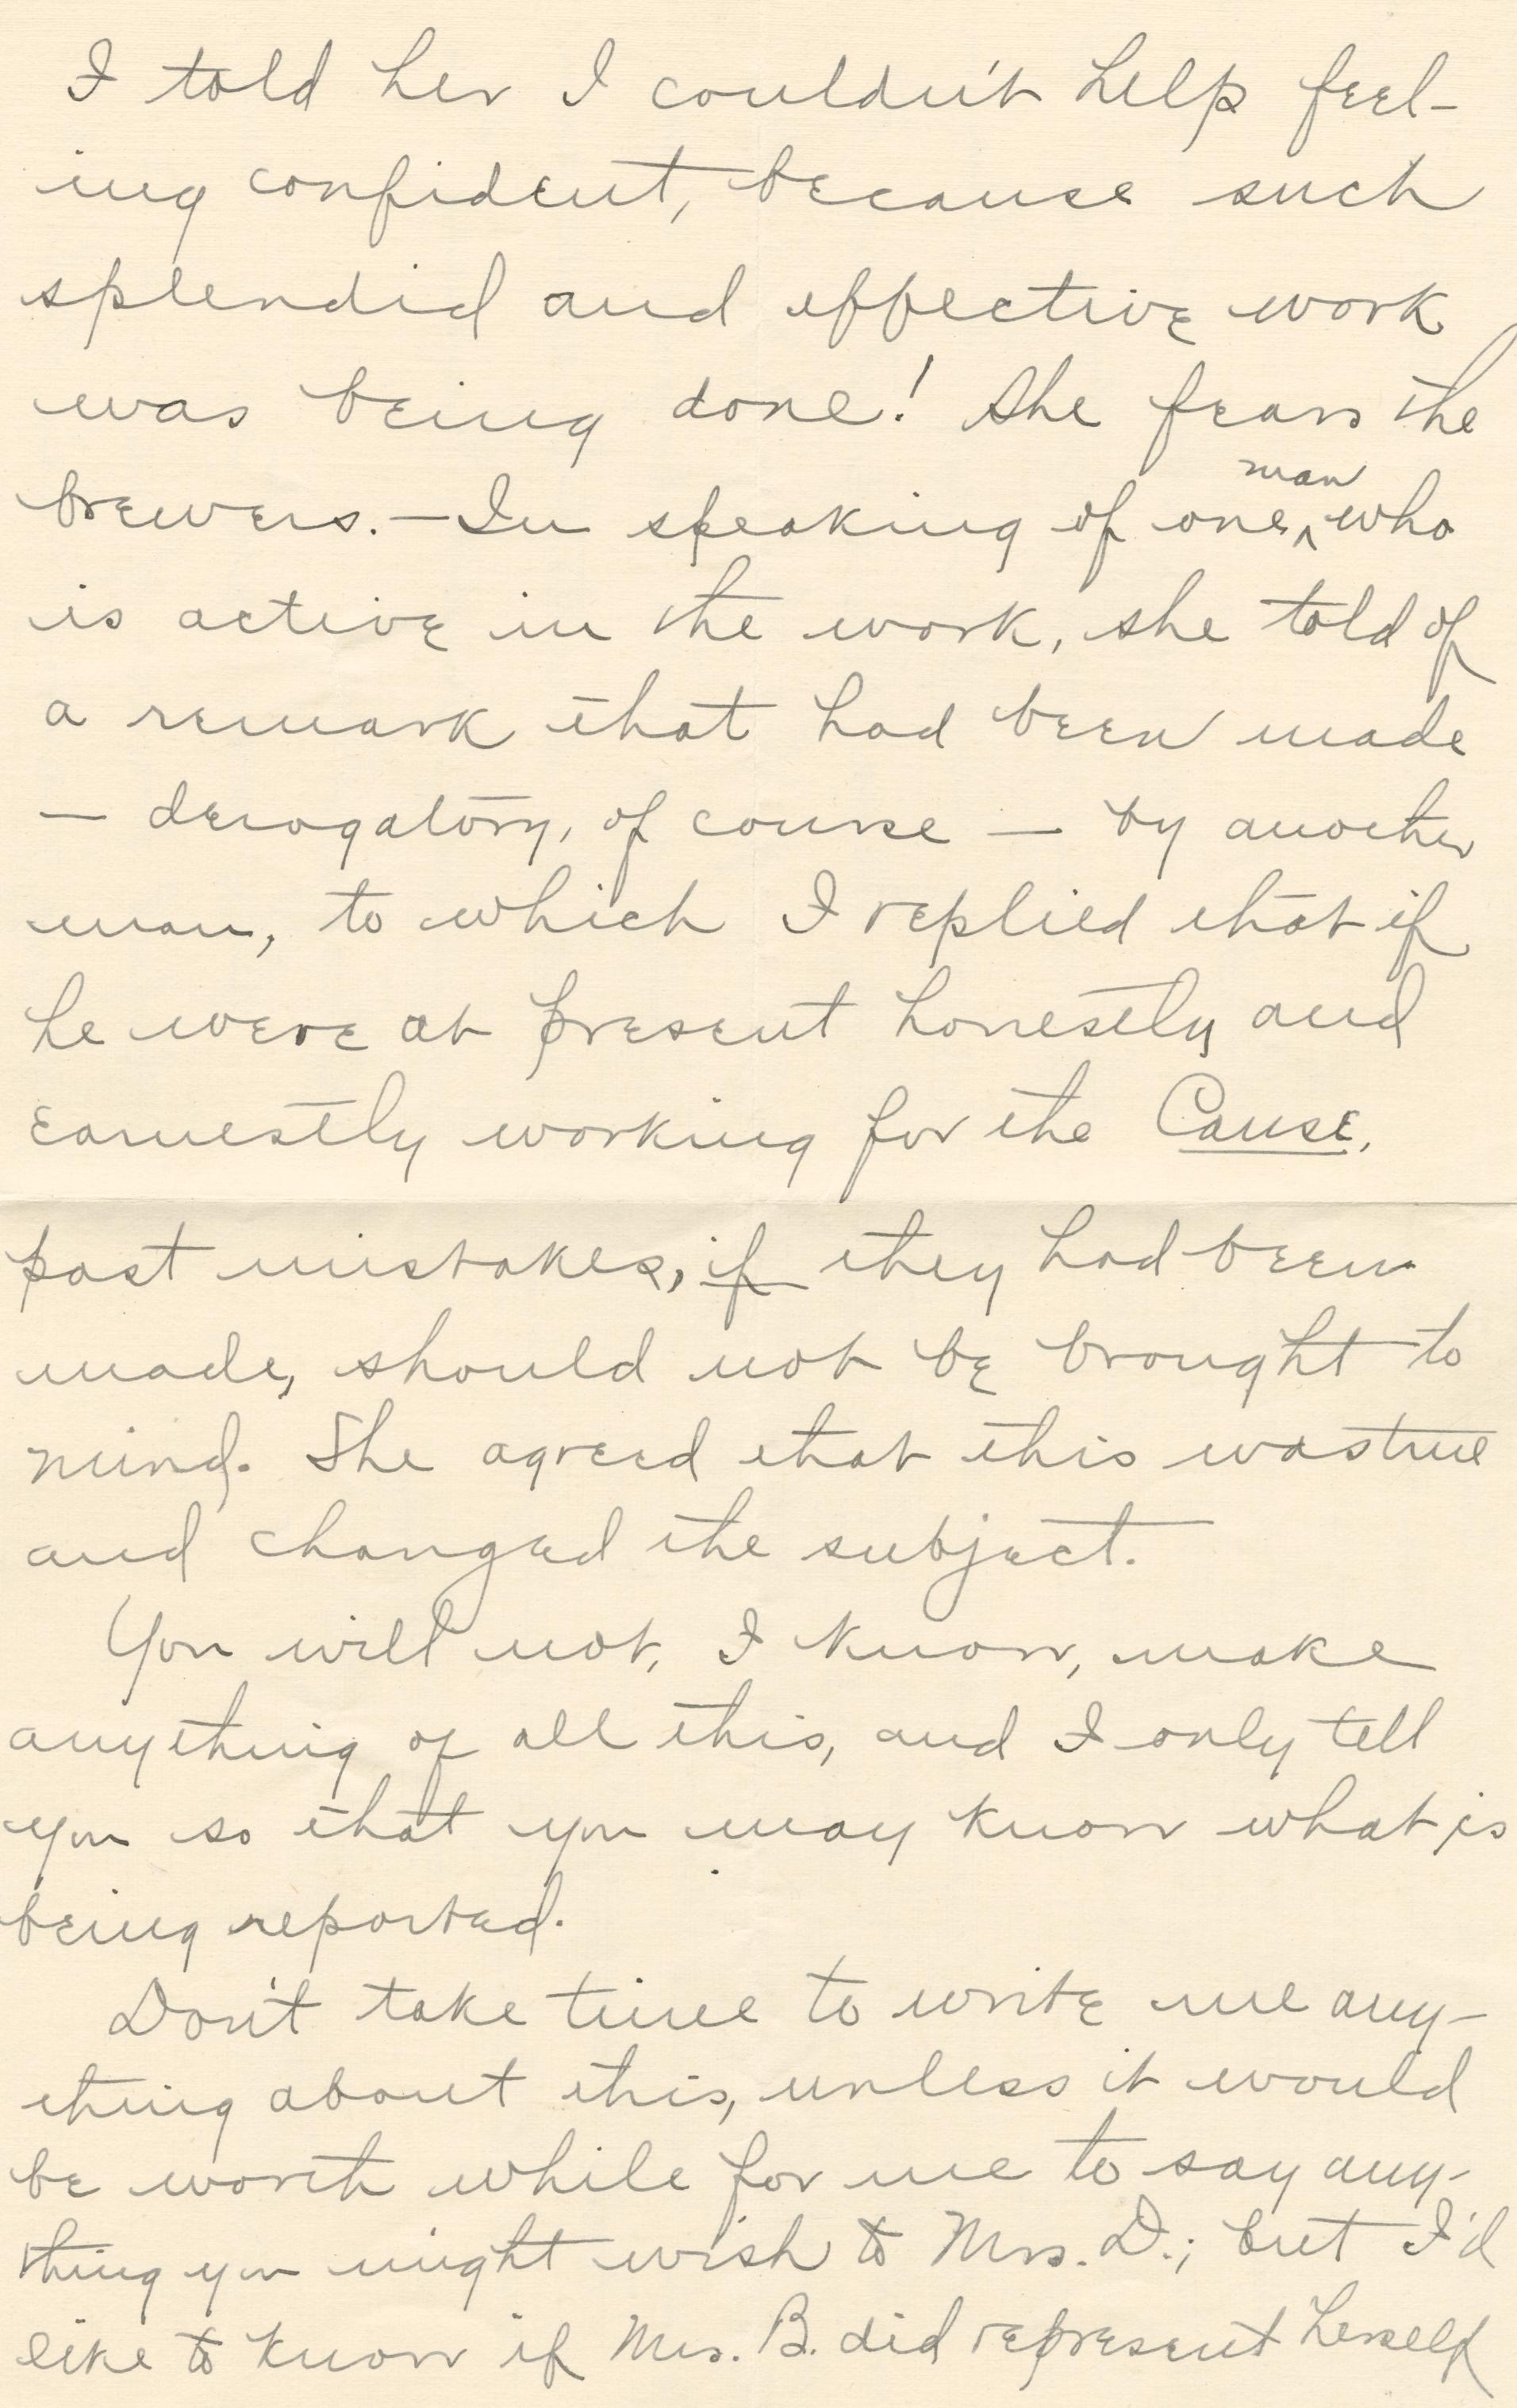 I told her I couldn't help feel-
ing confident, because such
splendid and effective work
was being done! She fears the
brewers. — In speaking of one ^man who
is active in the work, she told of
a remark that had been made
— derogatory, of course — by another
man, to which I replied that if
he were at present honestly and
earnestly working for the Cause,
past mistakes, if they had been
made, should not be brought to
mind. She agreed that this was true
and changed the subject.
You will not, I know, make
anything of all this, and I only tell
you so that you may know what is
being reported.
Don't take time to write me any-
thing about this, unless it would
be worth while for me to say any-
thing you might wish to Mrs. D.; but I'd
like to know if Mrs. B. did represent herself